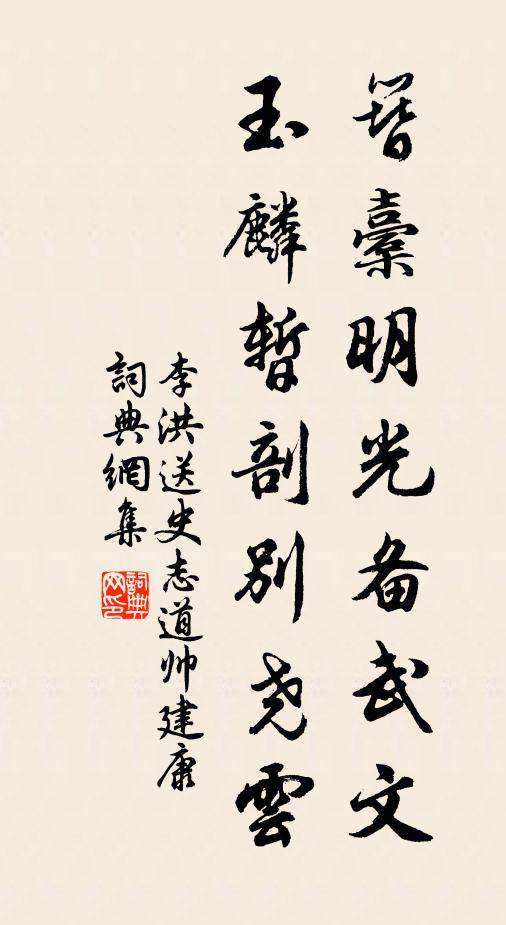 簪橐明光备武文
玉麟暫剖别尧雲
李洪送史志道帅建康
詞典網集
詞典网印